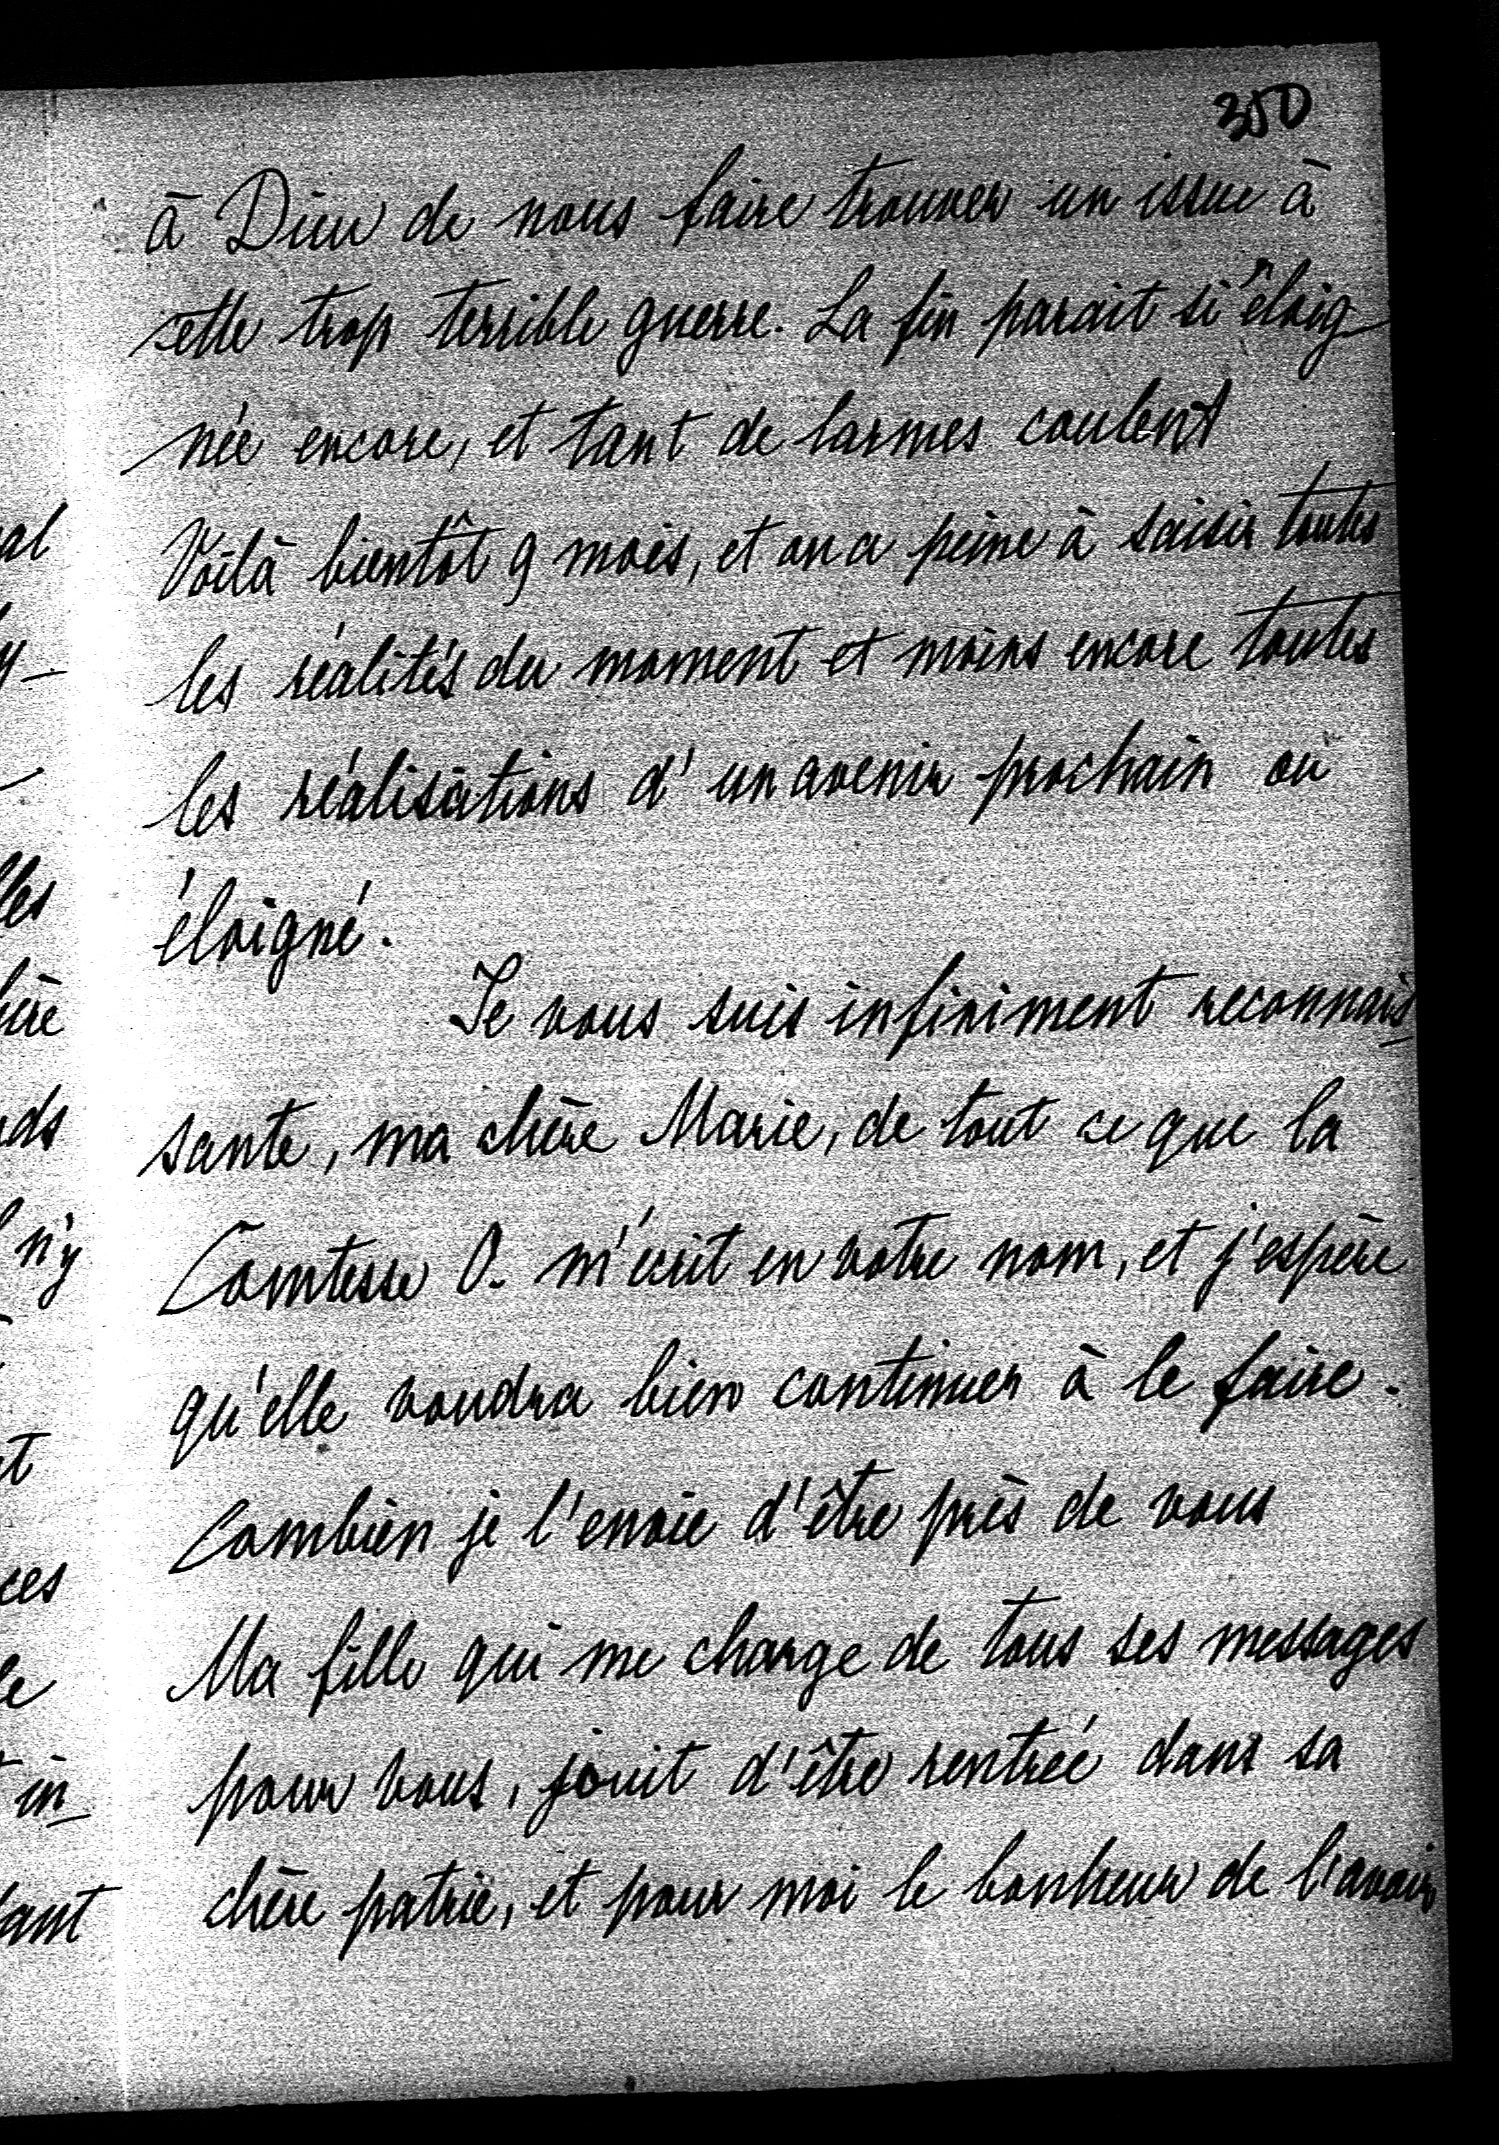 350
à Dieu de nous faire trouver un issue à
cette trop terrible guerre. La fin parait si éloig
née encore, et tant de larmes coulent
Voilà bientôt 9 mois, et on a peine à saisir toutes
les réalités du moment et moins encore toutes
les réalisations d'un avenir prochain ou
éloigné.
Je vous suis infiniment reconnais
sante, ma chère Marie, de tout ce que la
Comtesse O. m'écrit en votre nom, et j'espère
qu'elle voudra bien continuer à le faire.
Combien je l'envie d'être près de vous
Ma fille qui me charge de tous ses messages
pour vous, jouit d'être rentrée dans sa
chère patrie, et pour moi le bonheur de l'avoir